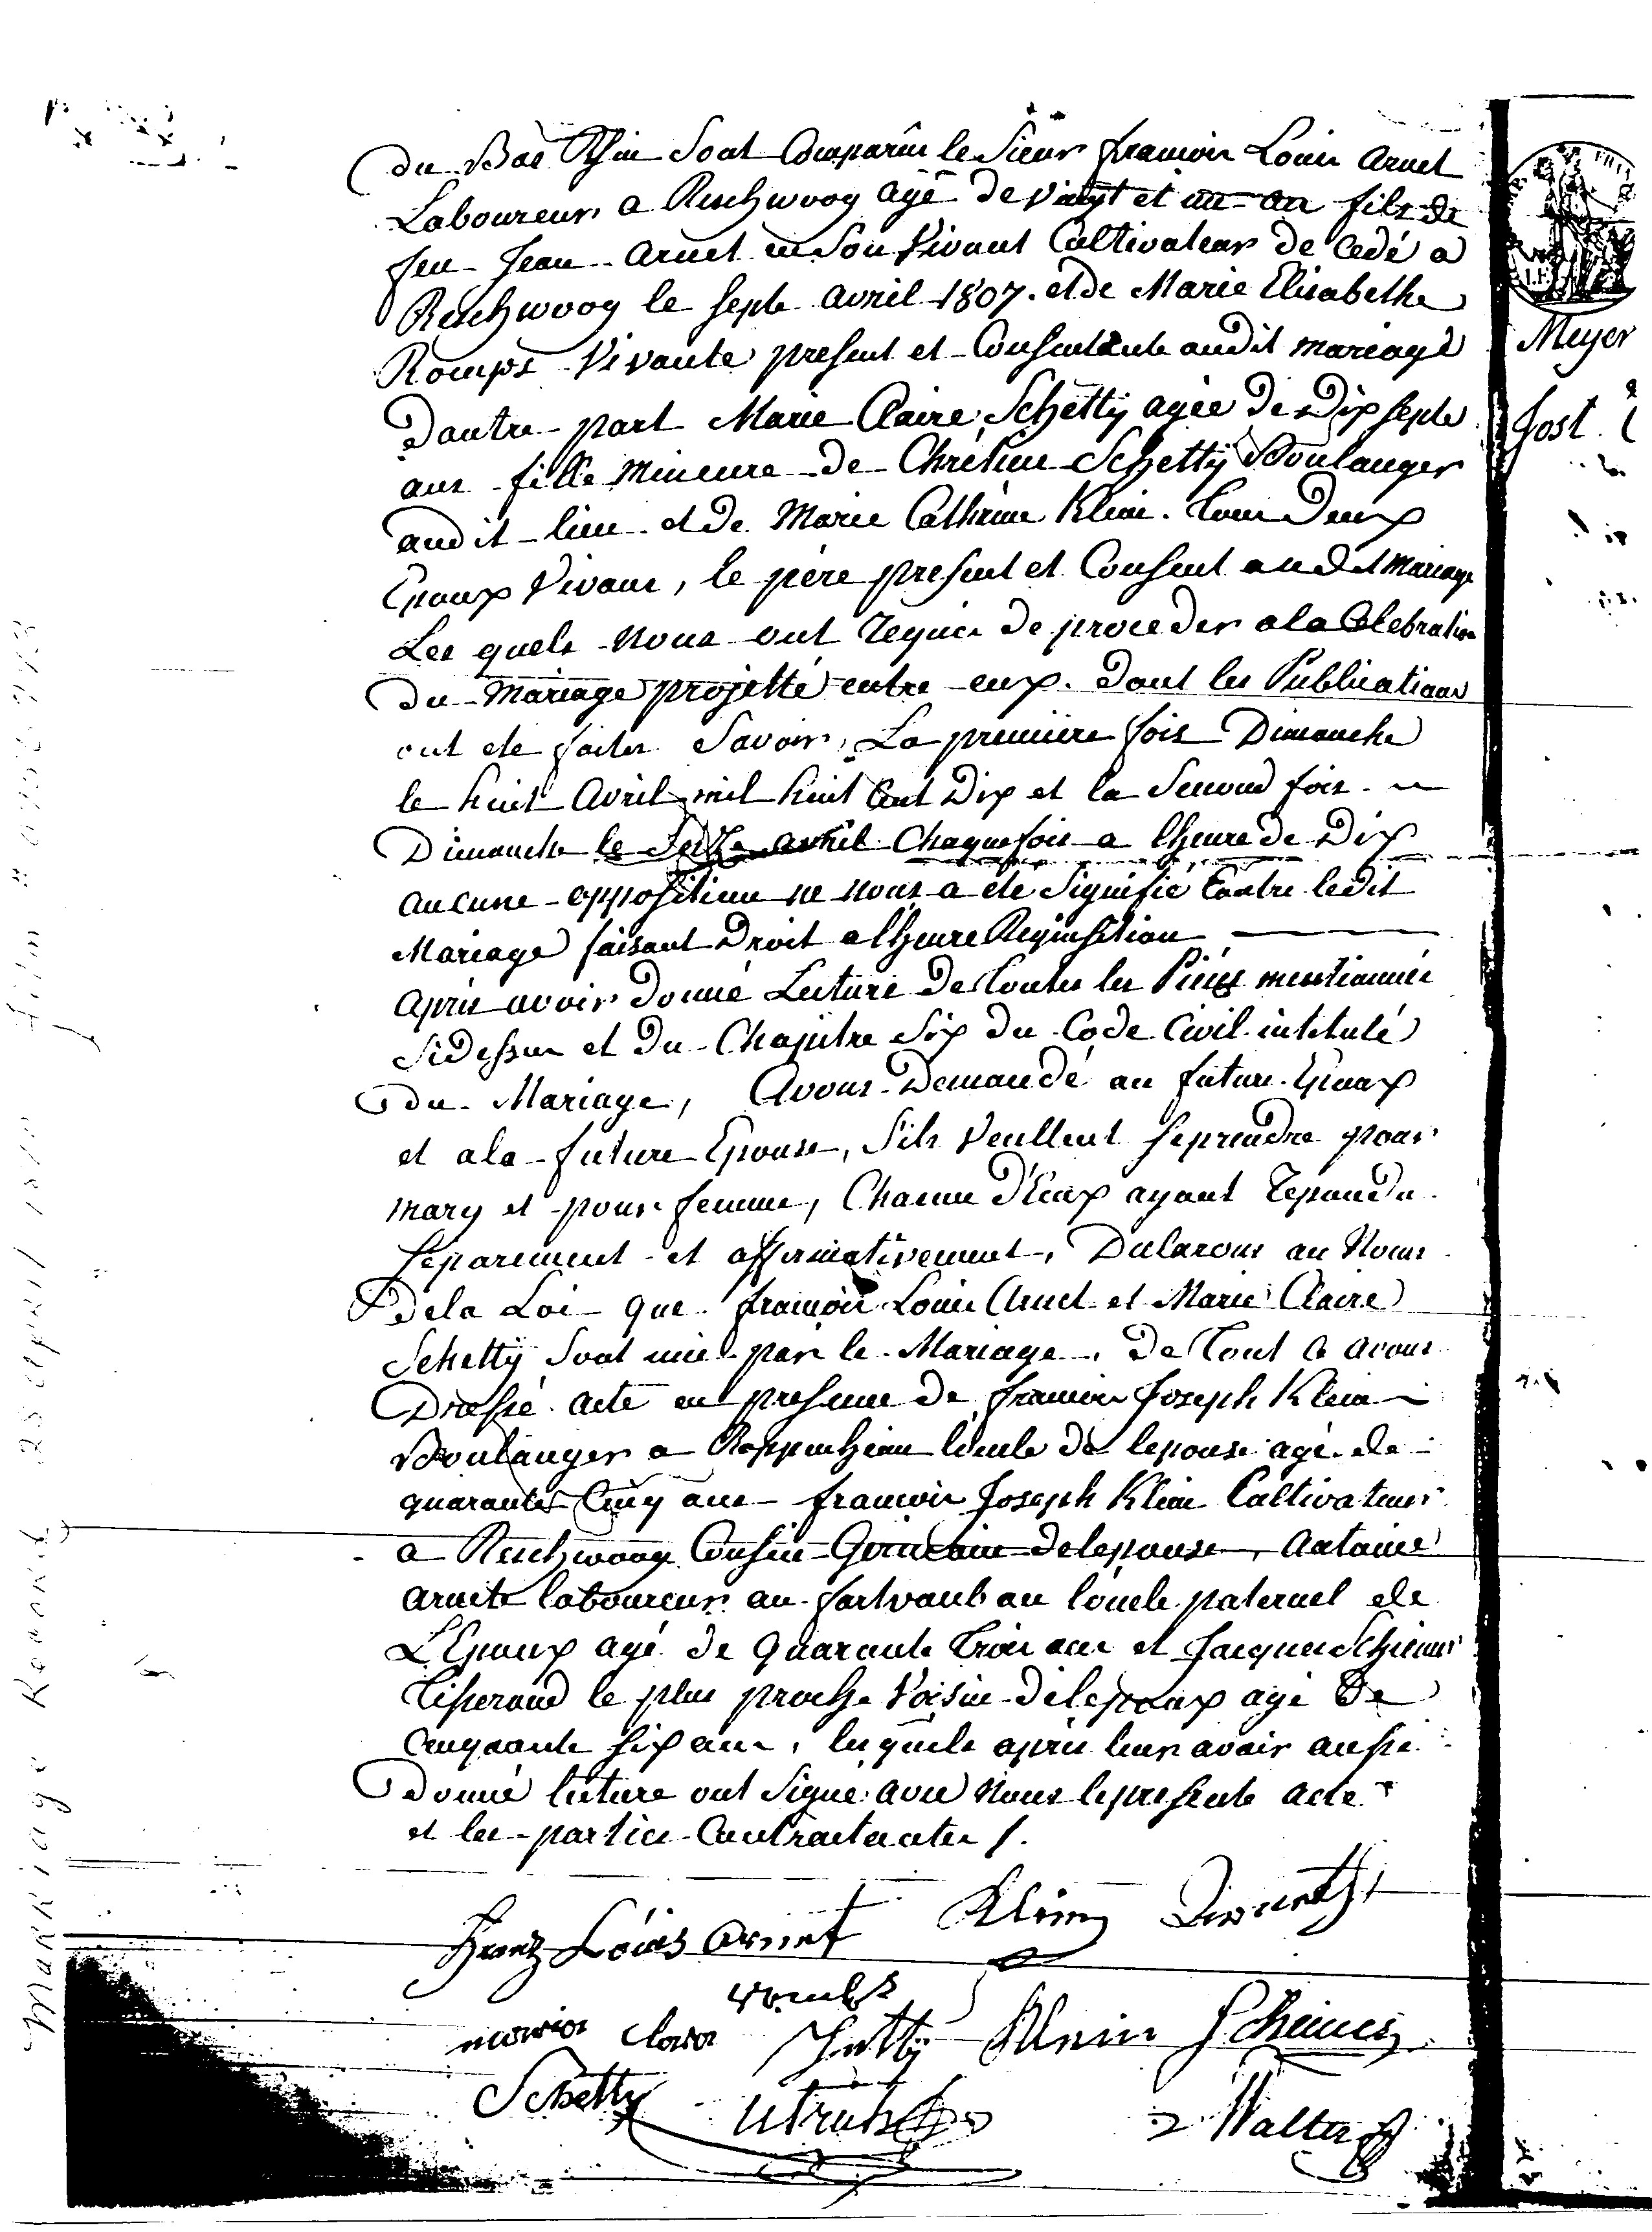 du Bas Rhin Sont Comparûs le Sieur francois Louis Arnet
Laboureur a Reschwoog agé de vingt et un an fils de
feu Jean Arnet en Son vivant Cultivateur de Cedé a
Reschwoog le Sept avril 1807. et de Marie Elisabethe
Romps Vivante present et Consentante audit mariage
Dautre part Marie Claire Schettÿ agée de Dix Septe
ans fille mineure de Chrétien Schettÿ Boulanger
audit lieu et de Marie Catherine Klein. tous Deux
Epoux Vivans, le père present et Consent audit Mariage
Les quels nous ont requis de proceder a la Celebration
du Mariage projetté entre eux. dont les Publications
ont ete faites Savoir, La premiere fois Dimanche
le huit Avril mil huit Cent Dix et la Second fois
Dimanche le avril Chaque fois a lheure de Dix
aucune opposition ne nous a ete Signifié Contre ledit
Mariage faisant Droit a lheure Requisition
après avoir donné Lecture de toutes les Pieces mentionnée
Sidessus et du Chapitre Six du Code Civil intitulé
du Mariage, Avons Demandé au future Epoux
et a la future Epouse, Sils veullent se prendre pour
mary et pour femme, Chacun d'Eux ayant repondu
Séparement et affirmativement, Declarons au Nom
de la Loi que francois Louis Arnet et Marie Claire
Schettÿ Sont unie par le Mariage, de tout Ce avons
Dressé acte en presence de francois Joseph Klein
Boulanger a Roppenheim loncle de lepouse agé de
quarante Cinq ans francois Joseph Klein Cultivateur
a Reschwoog Cousin Germain de lepouse, Antoine
Arnete laboureur au fortvauban lóncle paternel de
LEpoux agé de quarante trois ans et Jacques Schiemer
tisserand le plus proche Voisin de lepoux agé de
Cinquante six ans, lesquels après leur avoir aussi
donné lecture ont Signé avec nous le presente acte
et les parties Contractantes /.
Franz Lóuis Arnet Klein
maria clara Schettÿ Klein Schiemer
Schetty Walter
Meyer
Jost
Marriage Record 23 April 1810 film